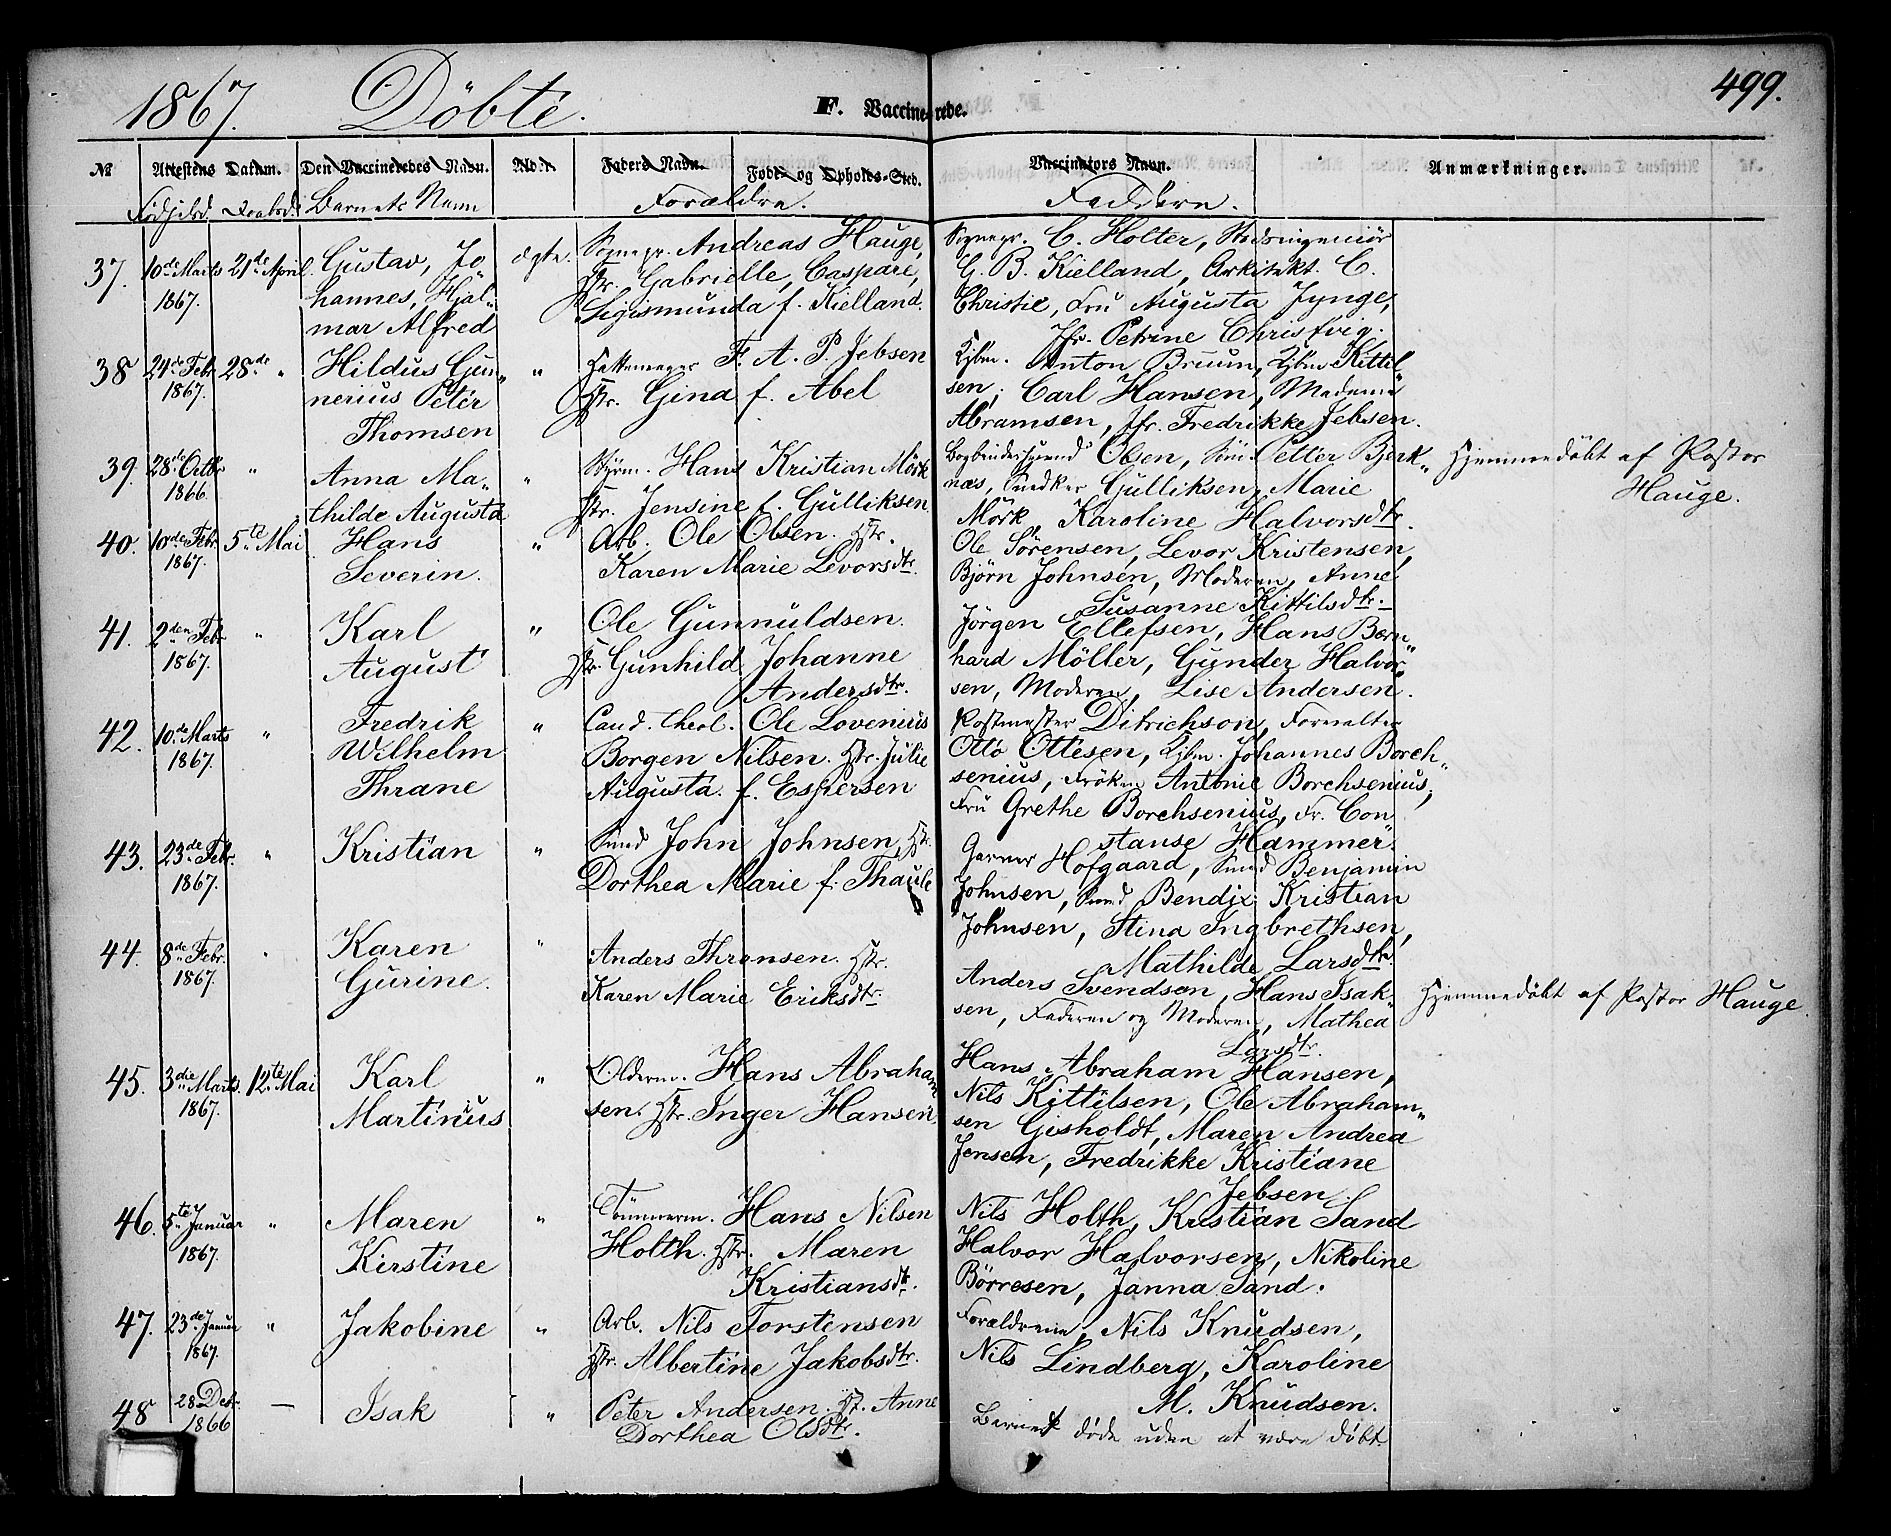 1867. Döbte. F. Vaccinerede. 499.
No Attestens Datum. Den Vaccineredes Navn. Alder. Faders Navn. Føde- og Opholds-Sted. Vaccinators Navn. Anmærkninger.
Födselsd. Daabsd. Barnets Navn Forældre. Faddere.
37. 10de Marts 1867. 21de April. Gustav, Jo
hannes, Hjal-
mar Alfred
ægte. Sognepr. Andreas Hauge,
Hstr. Gabrielle, Caspare,
Sigismunda f. Kielland.
Sognepr. C. Holter, Stadsingeniör
G. B. Kielland, Arkitekt. C.
Christie, Fru Augusta Jynge,
Jfr. Petrine Christvig.
38 24de Febr. 1867. 28de "
Hildus Gun-
nerius Peter
Thomsen
" Hattemager F. A. P. Jebsen
Hstr. Gina f. Abel
Kjbm. Anton Bruun, Kjbm Kittil-
sen, Carl Hansen, Madame
Abramsen, Jfr. Fredrikke Jebsen.
39. 28de Octbr 1866. "
Anna Ma-
thilde Augusta
" Styrm. Hans Kristian Mörk
Hstr. Jensine f. Gulliksen
Bogbindersvend Olsen, Petter Bjerk-
næs, Snedker Gulliksen, Marie
Mörk, Karoline Halvorsdtr.
Hjemmedöbt af Pastor
Hauge.
40. 10de Febr. 1867. 5te Mai
Hans
Severin.
" Arb. Ole Olsen. Hstr.
Karen Marie Levorsdtr.
Ole Sörensen, Levor Kristensen,
Björn Johnsen, Moderen, Anne
Susanne Kittilsdtr.
41. 2den Febr 1867. "
Karl
August
" Ole Gunnuldsen.
Hstr. Gunhild Johanne
Andersdtr.
Jörgen Ellefsen, Hans Bern-
hard Möller, Gunder Halvor-
sen, Moderen, Lise Andersen.
42. 10de Marts 1867. "
Fredrik
Wilhelm
Thrane
" Cand. theol. Ole Lovenius
Borgen Nilsen. Hstr. Julie
Augusta. f. Espersen
Postmester Ditrichson, Forvalter
Otto Ottesen, Kjbm. Johannes Borch-
senius, Fröken Antonie Borchsenius,
Fru Grethe Borchsenius, Fr. Con
stanse Hammer.
43. 23de Febr. 1867. "
Kristian
" Smed John Johnsen, Hstr.
Dorthea Marie f. Thaule
Garver Hofgaard, Smed Benjamin
Johnsen, Smed Bendix Kristian
Johnsen, Stina Ingbrethsen,
Mathilde Larsdtr.
44. 8de Febr. 1867. "
Karen
Gurine.
" Anders Thronsen. Hstr.
Karen Marie Eriksdtr.
Anders Svendsen, Hans Isak-
sen, Faderen og Moderen, Mathea
Larsdtr.
Hjemmedöbt af Pastor Hauge.
45. 3die Marts. 1867. 12te Mai
Karl
Martinius
" Olderm. Hans Abraham
sen. Hstr. Inger Hansen
Hans Abraham Hansen,
Nils Kittilsen, Ole Abraham-
sen Gisholdt, Maren Andrea
Jensen, Fredrikke Kristiane
Jebsen.
46. 5te Januar 1867. "
Maren
Kirstine
" Tömmerm. Hans Nilsen
Holth. Hstr. Maren
Kristiansdtr.
Nils Holth, Kristian Sand
Halvor Halvorsen, Nikoline
Börresen, Janna Sand.
47. 23de Januar 1867. "
Jakobine
" Arb. Nils Torstensen
Hstr. Albertine Jakobsdtr.
Forældrene, Nils Knudsen,
Nils Lindberg, Karoline
M. Knudsen.
48 28 Debr. 1866 —
Isak
" Peter Andersen. H. Anne
Dorthea Olsdtr.
Barnet döde uden at være döbt.